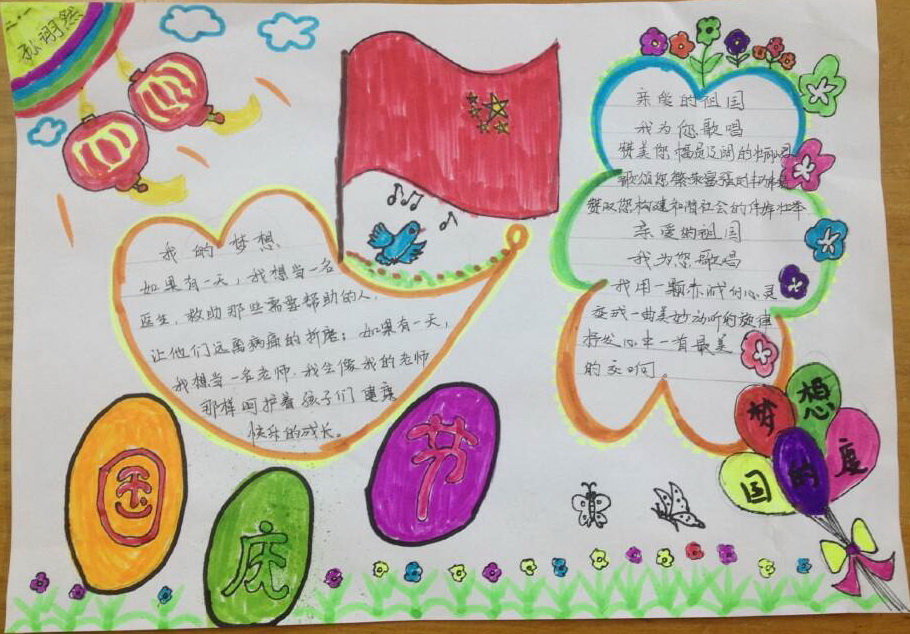 我的梦想
如果有一天，我想当一名
医生，救助那些需要帮助的人，
让他们远离病痛的折磨；如果有一天，
我想当一名老师，我会像我的老师
那样呵护着孩子们健康
快乐的成长。
亲爱的祖国
我为您歌唱
赞美您幅员辽阔的壮丽
歌颂您繁荣富强的丰功
赞叹您构建和谐社会的伟大壮举
亲爱的祖国
我为您歌唱
我用一颗赤诚的心灵
一曲美妙动听的旋律
抒发心中一首最美
的交响。
国庆节
梦想
国的度